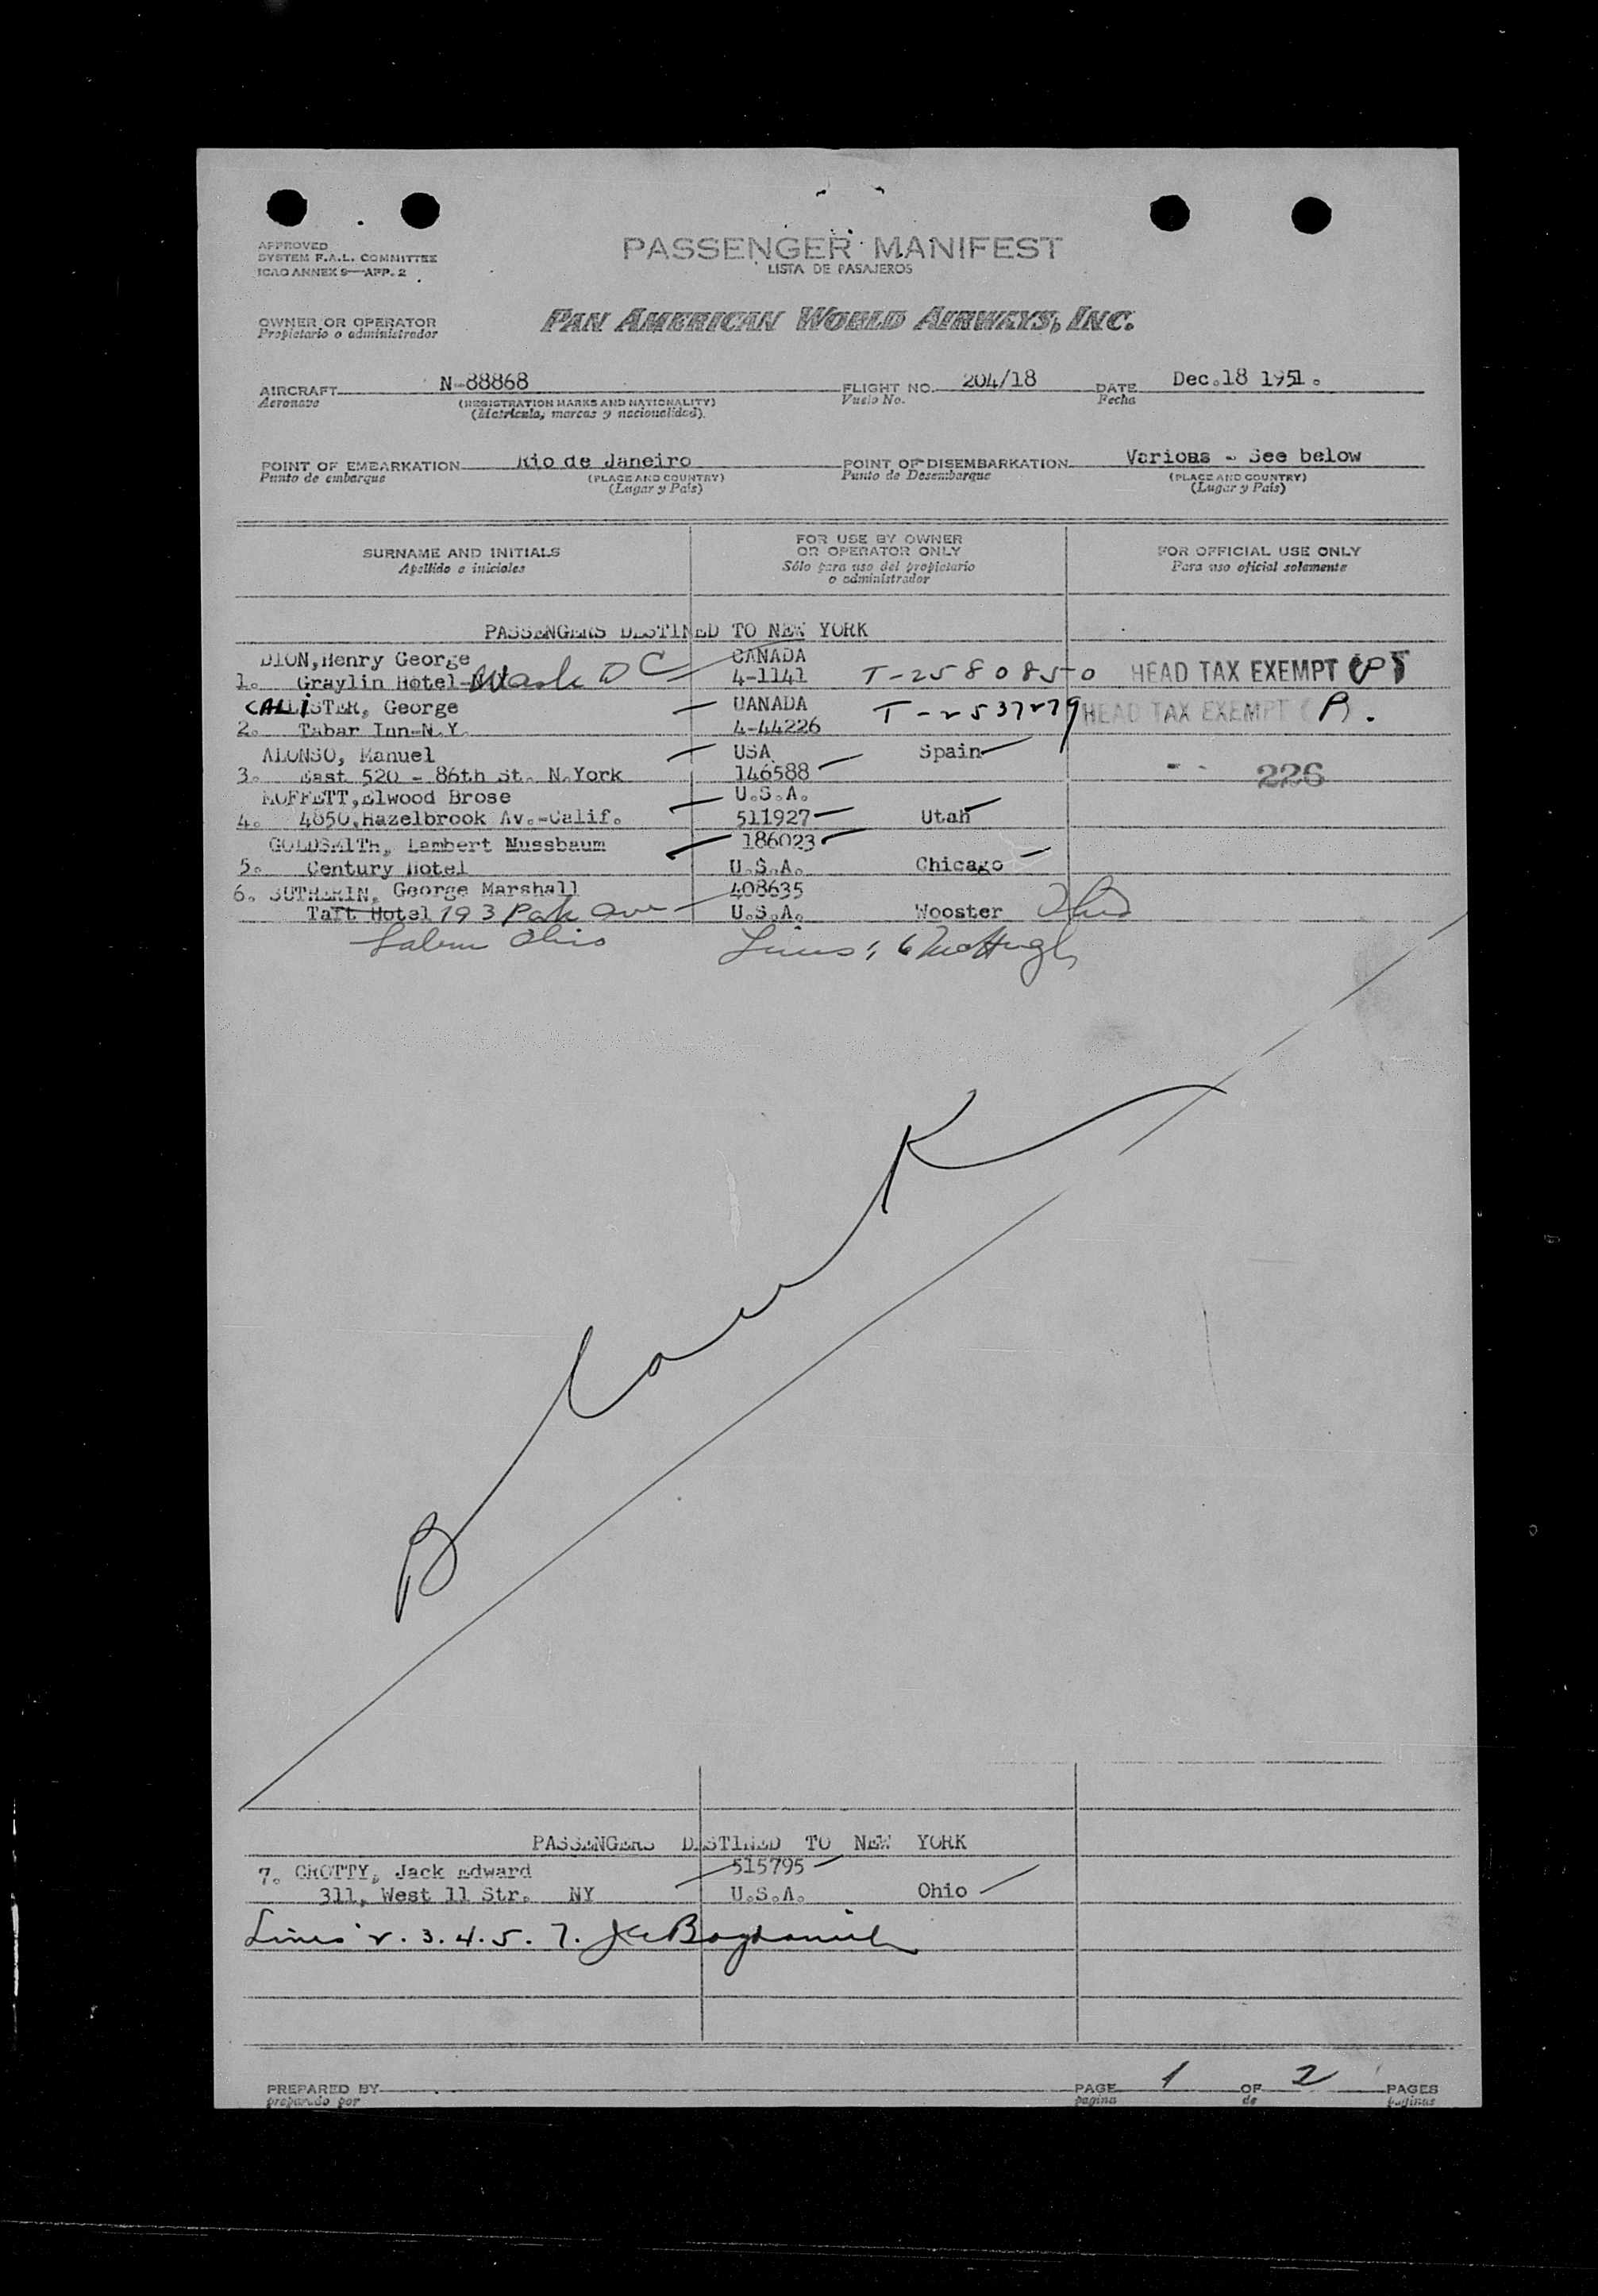 APPROVED
SYSTEM F.A.L. COMMITTEE
ICAO ANNEX 9—APP. 2
PASSENGER MANIFEST
LISTA DE PASAJEROS
OWNER OR OPERATOR
Propietario o administrador
PAN AMERICAN WORLD AIRWAYS, INC.
AIRCRAFT N-88868 FLIGHT NO. 204/18 DATE Dec.18 1951.
Aeronave (REGISTRATION MARKS AND NATIONALITY) Vuelo No. Fecha
(Matrícula, marcas y nacionalidad)
POINT OF EMBARKATION Rio de Janeiro POINT OF DISEMBARKATION Varioas - See below
Punto de embarque (PLACE AND COUNTRY) Punto de Desembarque (PLACE AND COUNTRY)
(Lugar y País) (Lugar y País)
SURNAME AND INITIALS FOR USE BY OWNER OR OPERATOR ONLY FOR OFFICIAL USE ONLY
Apellido e iniciales Sólo para uso del propietario o administrador Para uso oficial solamente
PASSENGERS DESTINED TO NEW YORK
DION,Henry George CANADA
1. Graylin Hotel- Wash D C 4-1141 T-2580850 HEAD TAX EXEMPT
CALLISTER, George CANADA T-2537279 HEAD TAX EXEMPT
2. Tabar Inn-N.Y. 4-44226
ALONSO, Manuel USA Spain
3. East 520 - 86th St. N.York 146588 226
MOFFETT,Elwood Brose U.S.A.
4. 4850,Hazelbrook Av.-Calif. 511927 Utah
GOLDSMITH, Lambert Nussbaum 186023
5. Century Hotel U.S.A. Chicago
6. SUTHERIN, George Marshall 408635
Taft Hotel 193 Park Ave U.S.A. Wooster Ohio
Salem Ohio Lines 1, 6 McHugh
Blank
PASSENGERS DESTINED TO NEW YORK
7. CROTTY, Jack Edward 515795
311, West 11 Str. NY U.S.A. Ohio
Lines 2. 3. 4. 5. 7.
PREPARED BY PAGE 1 OF 2 PAGES
preparado por pagina de paginas